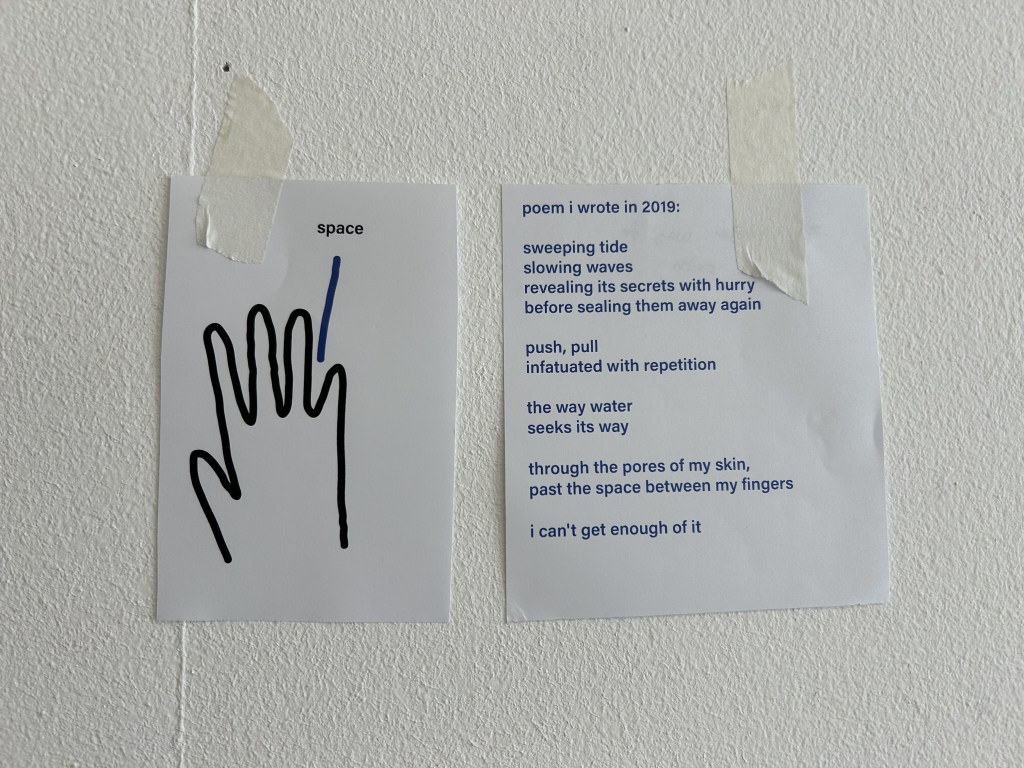 space
poem i wrote in 2019:
sweeping tide
slowing waves
revealing its secrets with hurry
before sealing them away again
push, pull
infatuated with repetition
the way water
seeks its way
through the pores of my skin,
past the space between my fingers
i can't get enough of it